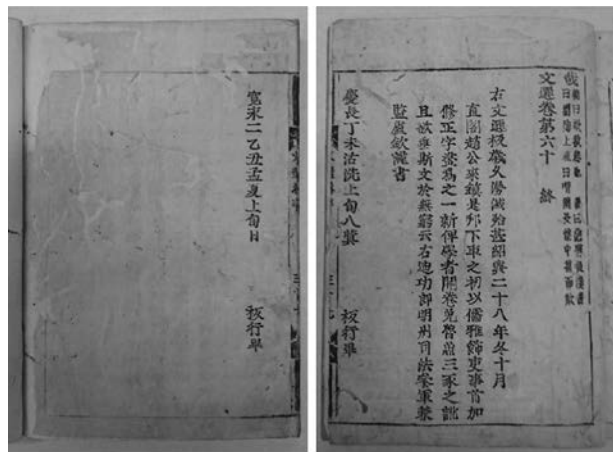 哉
文選卷第六十 終
右文選板歲久漫滅殆甚紹興二十八年冬十月
直閣趙公來鎮是邦下車之初以儒雅飾吏事首加
修正字畫爲之一新俾學者開卷免魯魚三豕之訛
且欲垂斯文於無窮云右迪功郎明州司法參軍兼
監盧欽謹書
慶長丁未沽洗上旬八蓂 板行畢
寬永二乙丑孟夏上旬日 板行畢